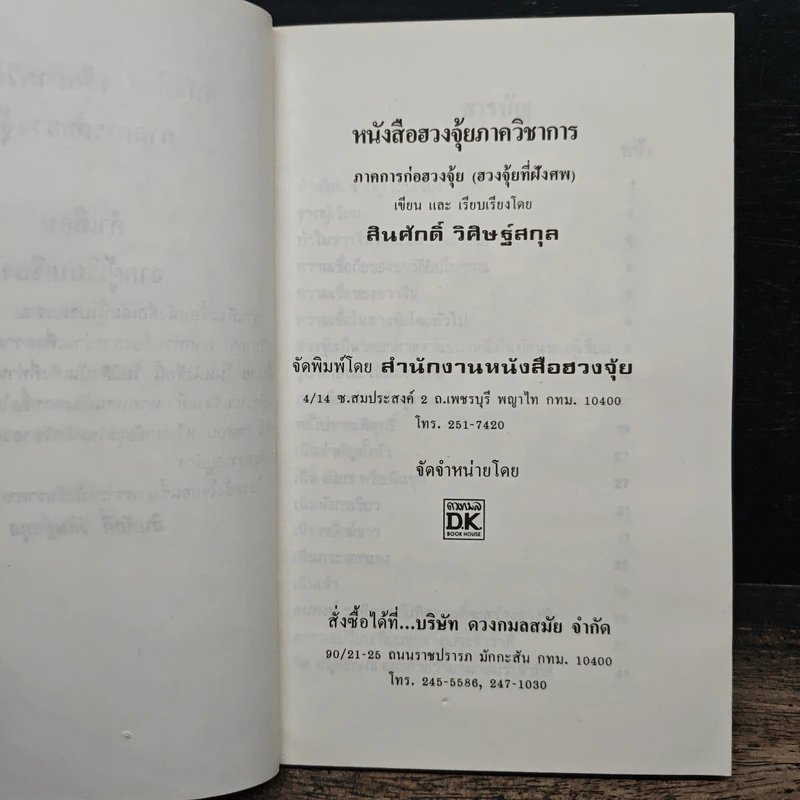 หนังสือฮวงจุ้ยภาควิชาการ
ภาคการก่อฮวงจุ้ย (ฮวงจุ้ยที่ฝังศพ)
เขียน และ เรียบเรียงโดย
สินศักดิ์ วิศิษฐ์สกุล
จัดพิมพ์โดย สำนักงานหนังสือฮวงจุ้ย
4/14 ซ.สมประสงค์ 2 ถ.เพชรบุรี พญาไท กทม. 10400
โทร. 251-7420
จัดจำหน่ายโดย
ดวงกมล
D.K.
BOOK HOUSE
สั่งซื้อได้ที่...บริษัท ดวงกมลสมัย จำกัด
90/21-25 ถนนราชปรารภ มักกะสัน กทม. 10400
โทร. 245-5586, 247-1030